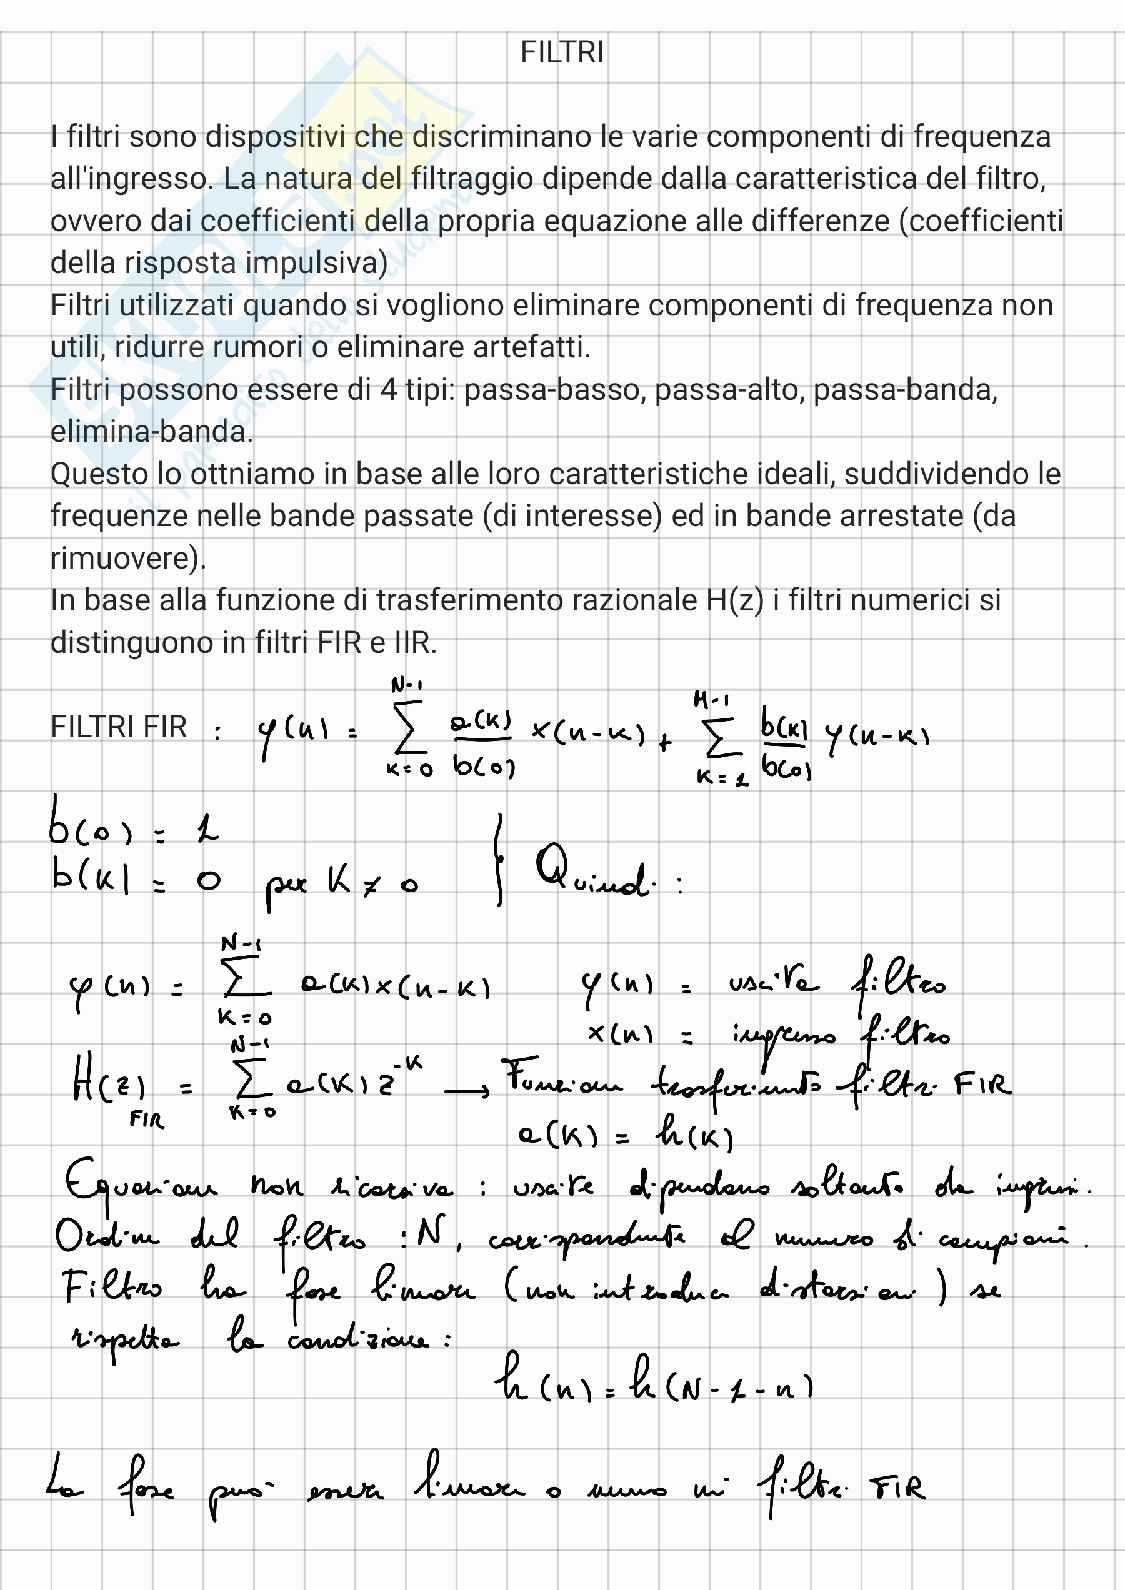 FILTRI
I filtri sono dispositivi che discriminano le varie componenti di frequenza
all'ingresso. La natura del filtraggio dipende dalla caratteristica del filtro,
ovvero dai coefficienti della propria equazione alle differenze (coefficienti
della risposta impulsiva)
Filtri utilizzati quando si vogliono eliminare componenti di frequenza non
utili, ridurre rumori o eliminare artefatti.
Filtri possono essere di 4 tipi: passa-basso, passa-alto, passa-banda,
elimina-banda.
Questo lo ottniamo in base alle loro caratteristiche ideali, suddividendo le
frequenze nelle bande passate (di interesse) ed in bande arrestate (da
rimuovere).
In base alla funzione di trasferimento razionale H(z) i filtri numerici si
distinguono in filtri FIR e IIR.
FILTRI FIR : y(n) = ∑_{k=0}^{N-1} a(k)/b(0) x(n-k) + ∑_{k=1}^{M-1} b(k)/b(0) y(n-k)
b(0) = 1
b(k) = 0 per K ≠ 0 } Quindi :
y(n) = ∑_{k=0}^{N-1} a(k)x(n-k) y(n) = uscita filtro
x(n) = ingresso filtro
H(z)_{FIR} = ∑_{k=0}^{N-1} a(k) z^{-k} → Funzione trasferimento filtri FIR
a(k) = h(k)
Equazione non ricorsiva : uscite dipendono soltanto da ingressi.
Ordine del filtro : N, corrispondente al numero di campioni.
Filtro ha fase lineare (non introduce distorsioni) se
rispetta la condizione :
h(n) = h(N-1-n)
La fase può essere lineare o meno nei filtri FIR